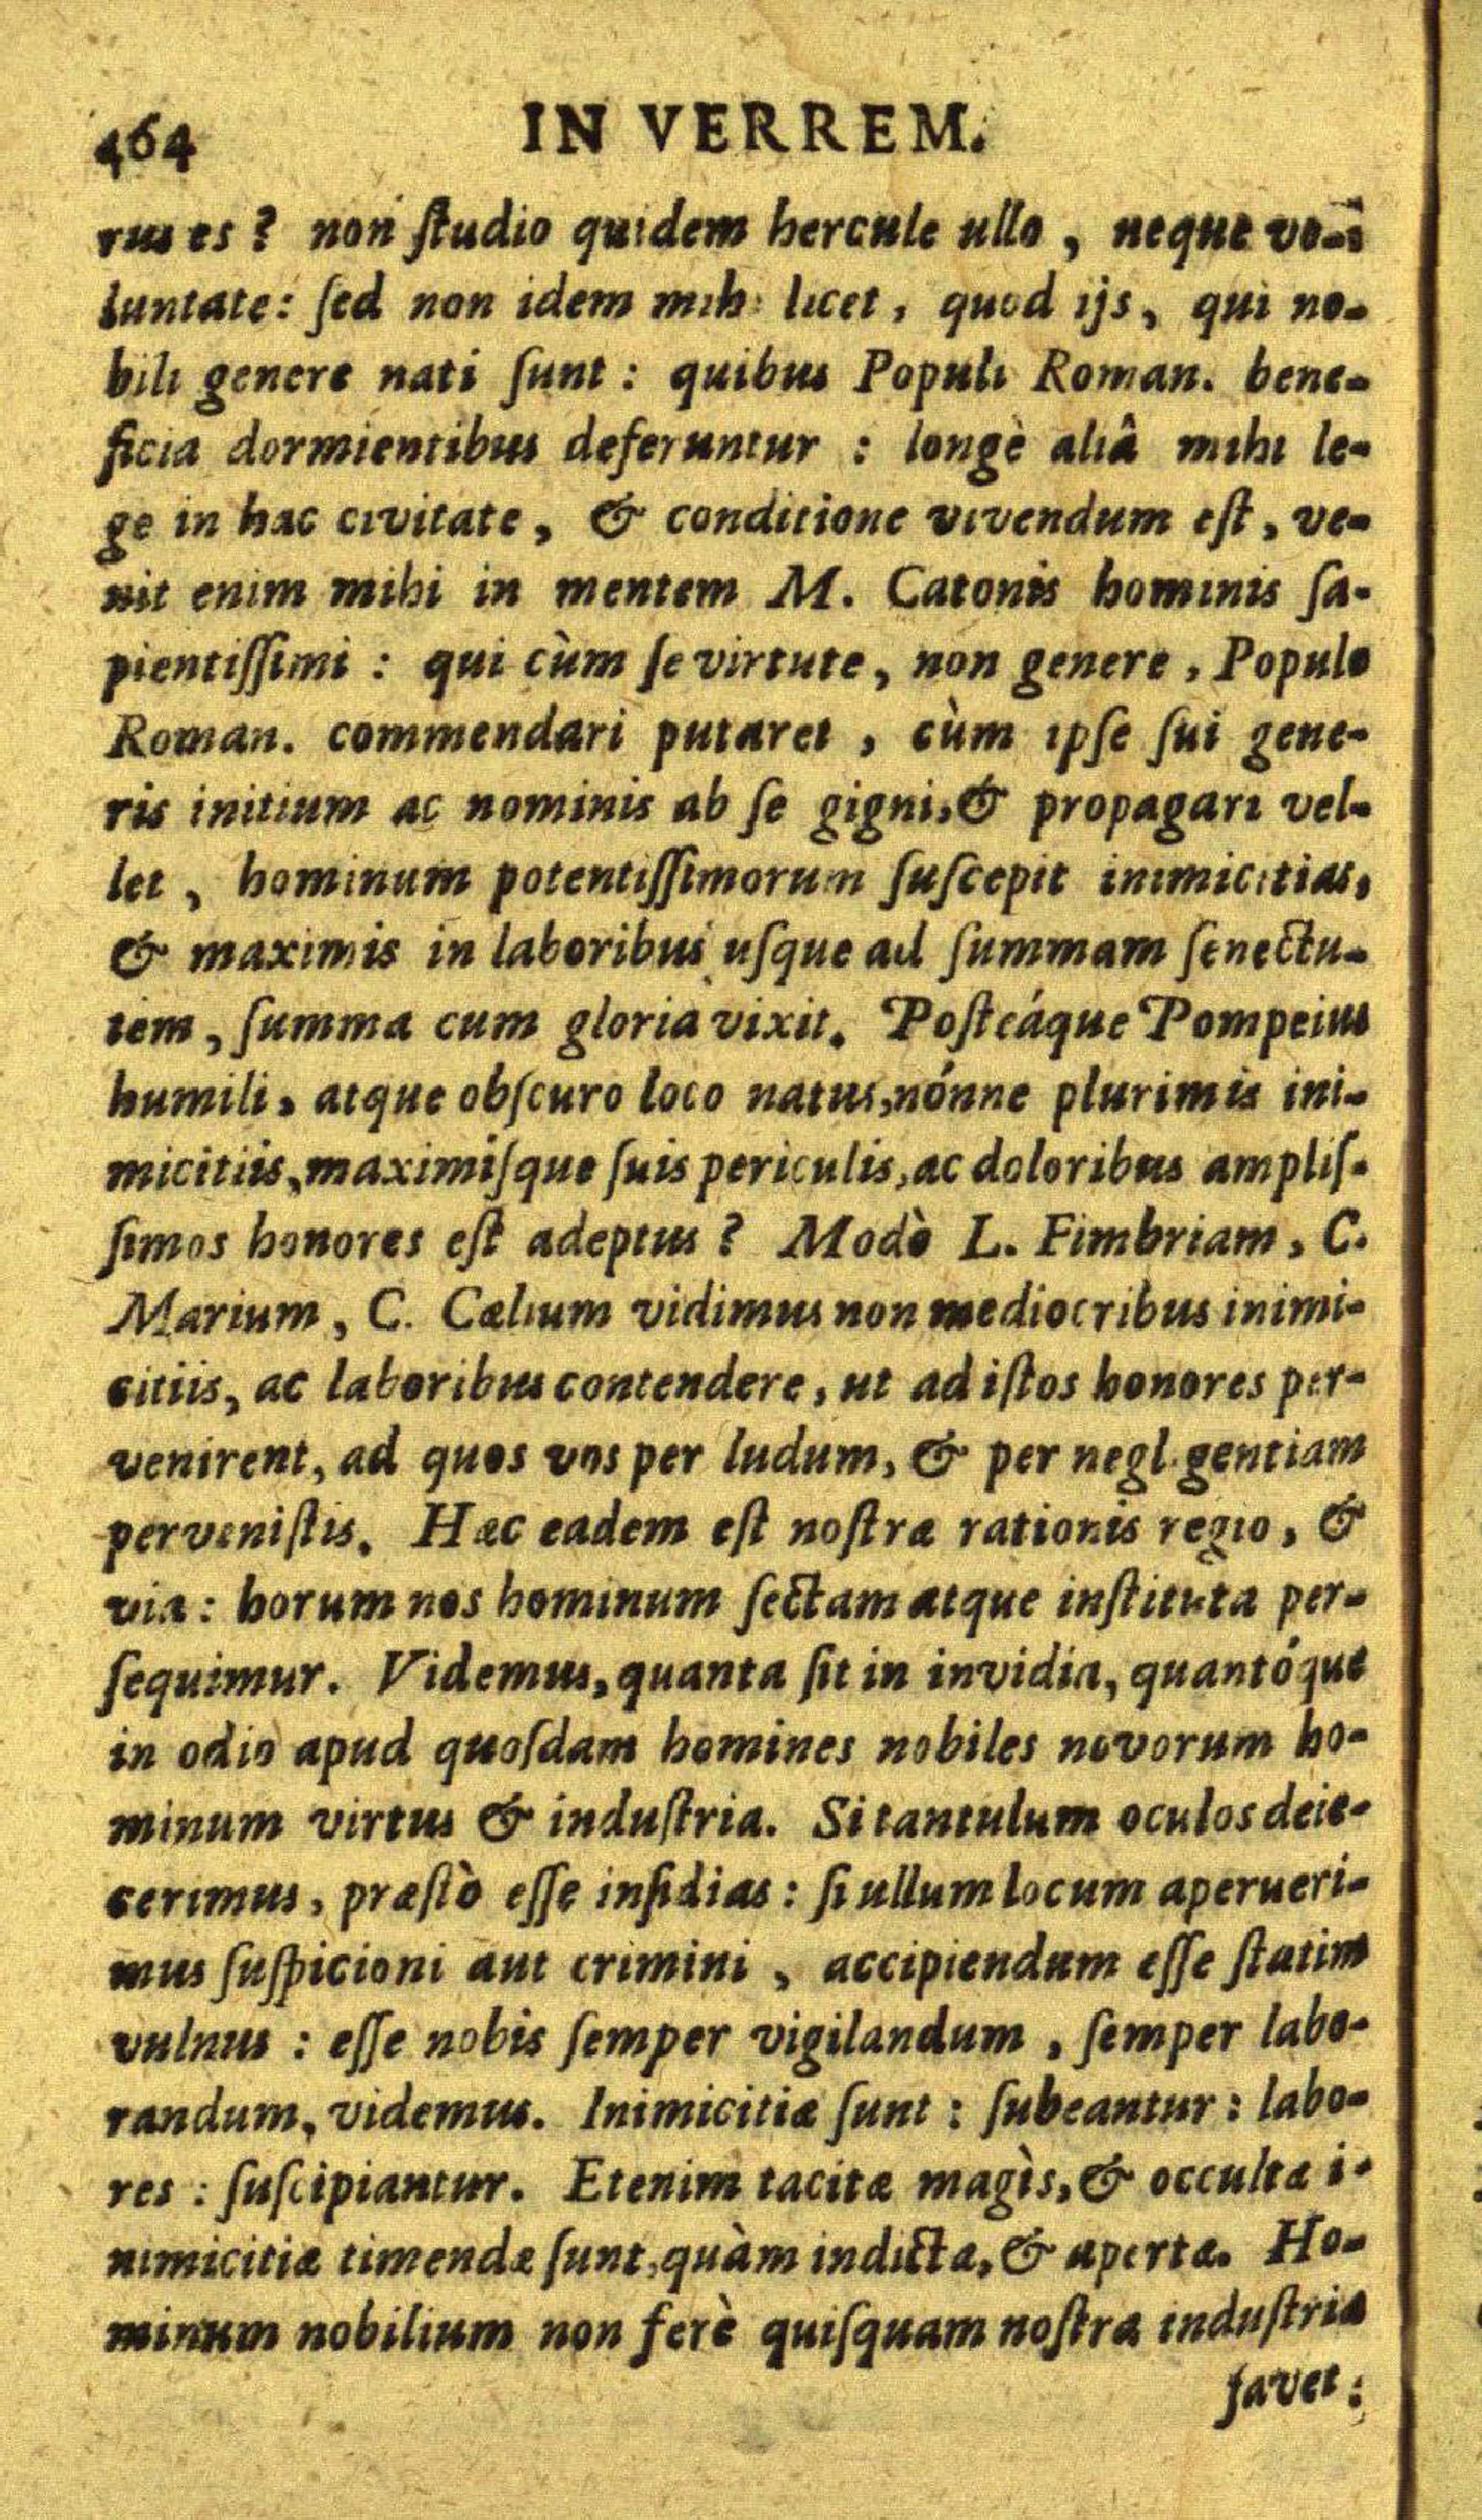 464 IN VERREM.
rus es? non ſtudio quidem hercule ullo, neque vo-
luntate: ſed non idem mihi licet, quod ijs, qui no-
bili genere nati ſunt: quibus Populi Roman. bene-
ficia dormientibus deferuntur: longè aliâ mihi le-
ge in hac civitate, & conditione vivendum eſt, ve-
nit enim mihi in mentem M. Catonis hominis ſa-
pientiſſimi: qui cùm ſe virtute, non genere, Populo
Roman. commendari putaret, cùm ipſe ſui gene-
ris initium ac nominis ab ſe gigni, & propagari vel-
let, hominum potentiſſimorum ſuſcepit inimicitias,
& maximis in laboribus uſque ad ſummam ſenectu-
tem, ſumma cum gloria vixit. Poſteáque Pompeius
humili, atque obſcuro loco natus, nónne plurimis ini-
micitiis, maximiſque ſuis periculis, ac doloribus ampliſ-
ſimos honores eſt adeptus? Modò L. Fimbriam, C.
Marium, C. Cælium vidimus non mediocribus inimi-
citiis, ac laboribus contendere, ut ad iſtos honores per-
venirent, ad quos vos per ludum, & per negligentiam
perveniſtis. Hæc eadem eſt noſtræ rationis regio, &
via: horum nos hominum ſectam atque inſtituta per-
ſequimur. Videmus, quanta ſit in invidia, quantóque
in odio apud quoſdam homines nobiles novorum ho-
minum virtus & induſtria. Si tantulum oculos deie-
cerimus, præſtò eſſe inſidias: ſi ullum locum aperueri-
mus ſuſpicioni aut crimini, accipiendum eſſe ſtatim
vulnus: eſſe nobis ſemper vigilandum, ſemper labo-
randum, videmus. Inimicitiæ ſunt: ſubeantur: labo-
res: ſuſcipiantur. Etenim tacitæ magìs, & occultæ i-
nimicitiæ timendæ ſunt, quàm indictæ, & apertæ. Ho-
minum nobilium non ferè quiſquam noſtra induſtria
favet: